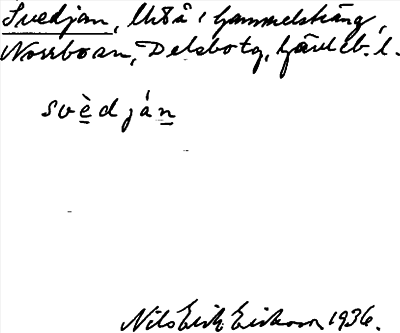 Svedjan, Utså i Gammelsträng,
Norrboån, Delsbo tg, Gävleb. l.
svèdján
Nils Erik Eriksson 1936.